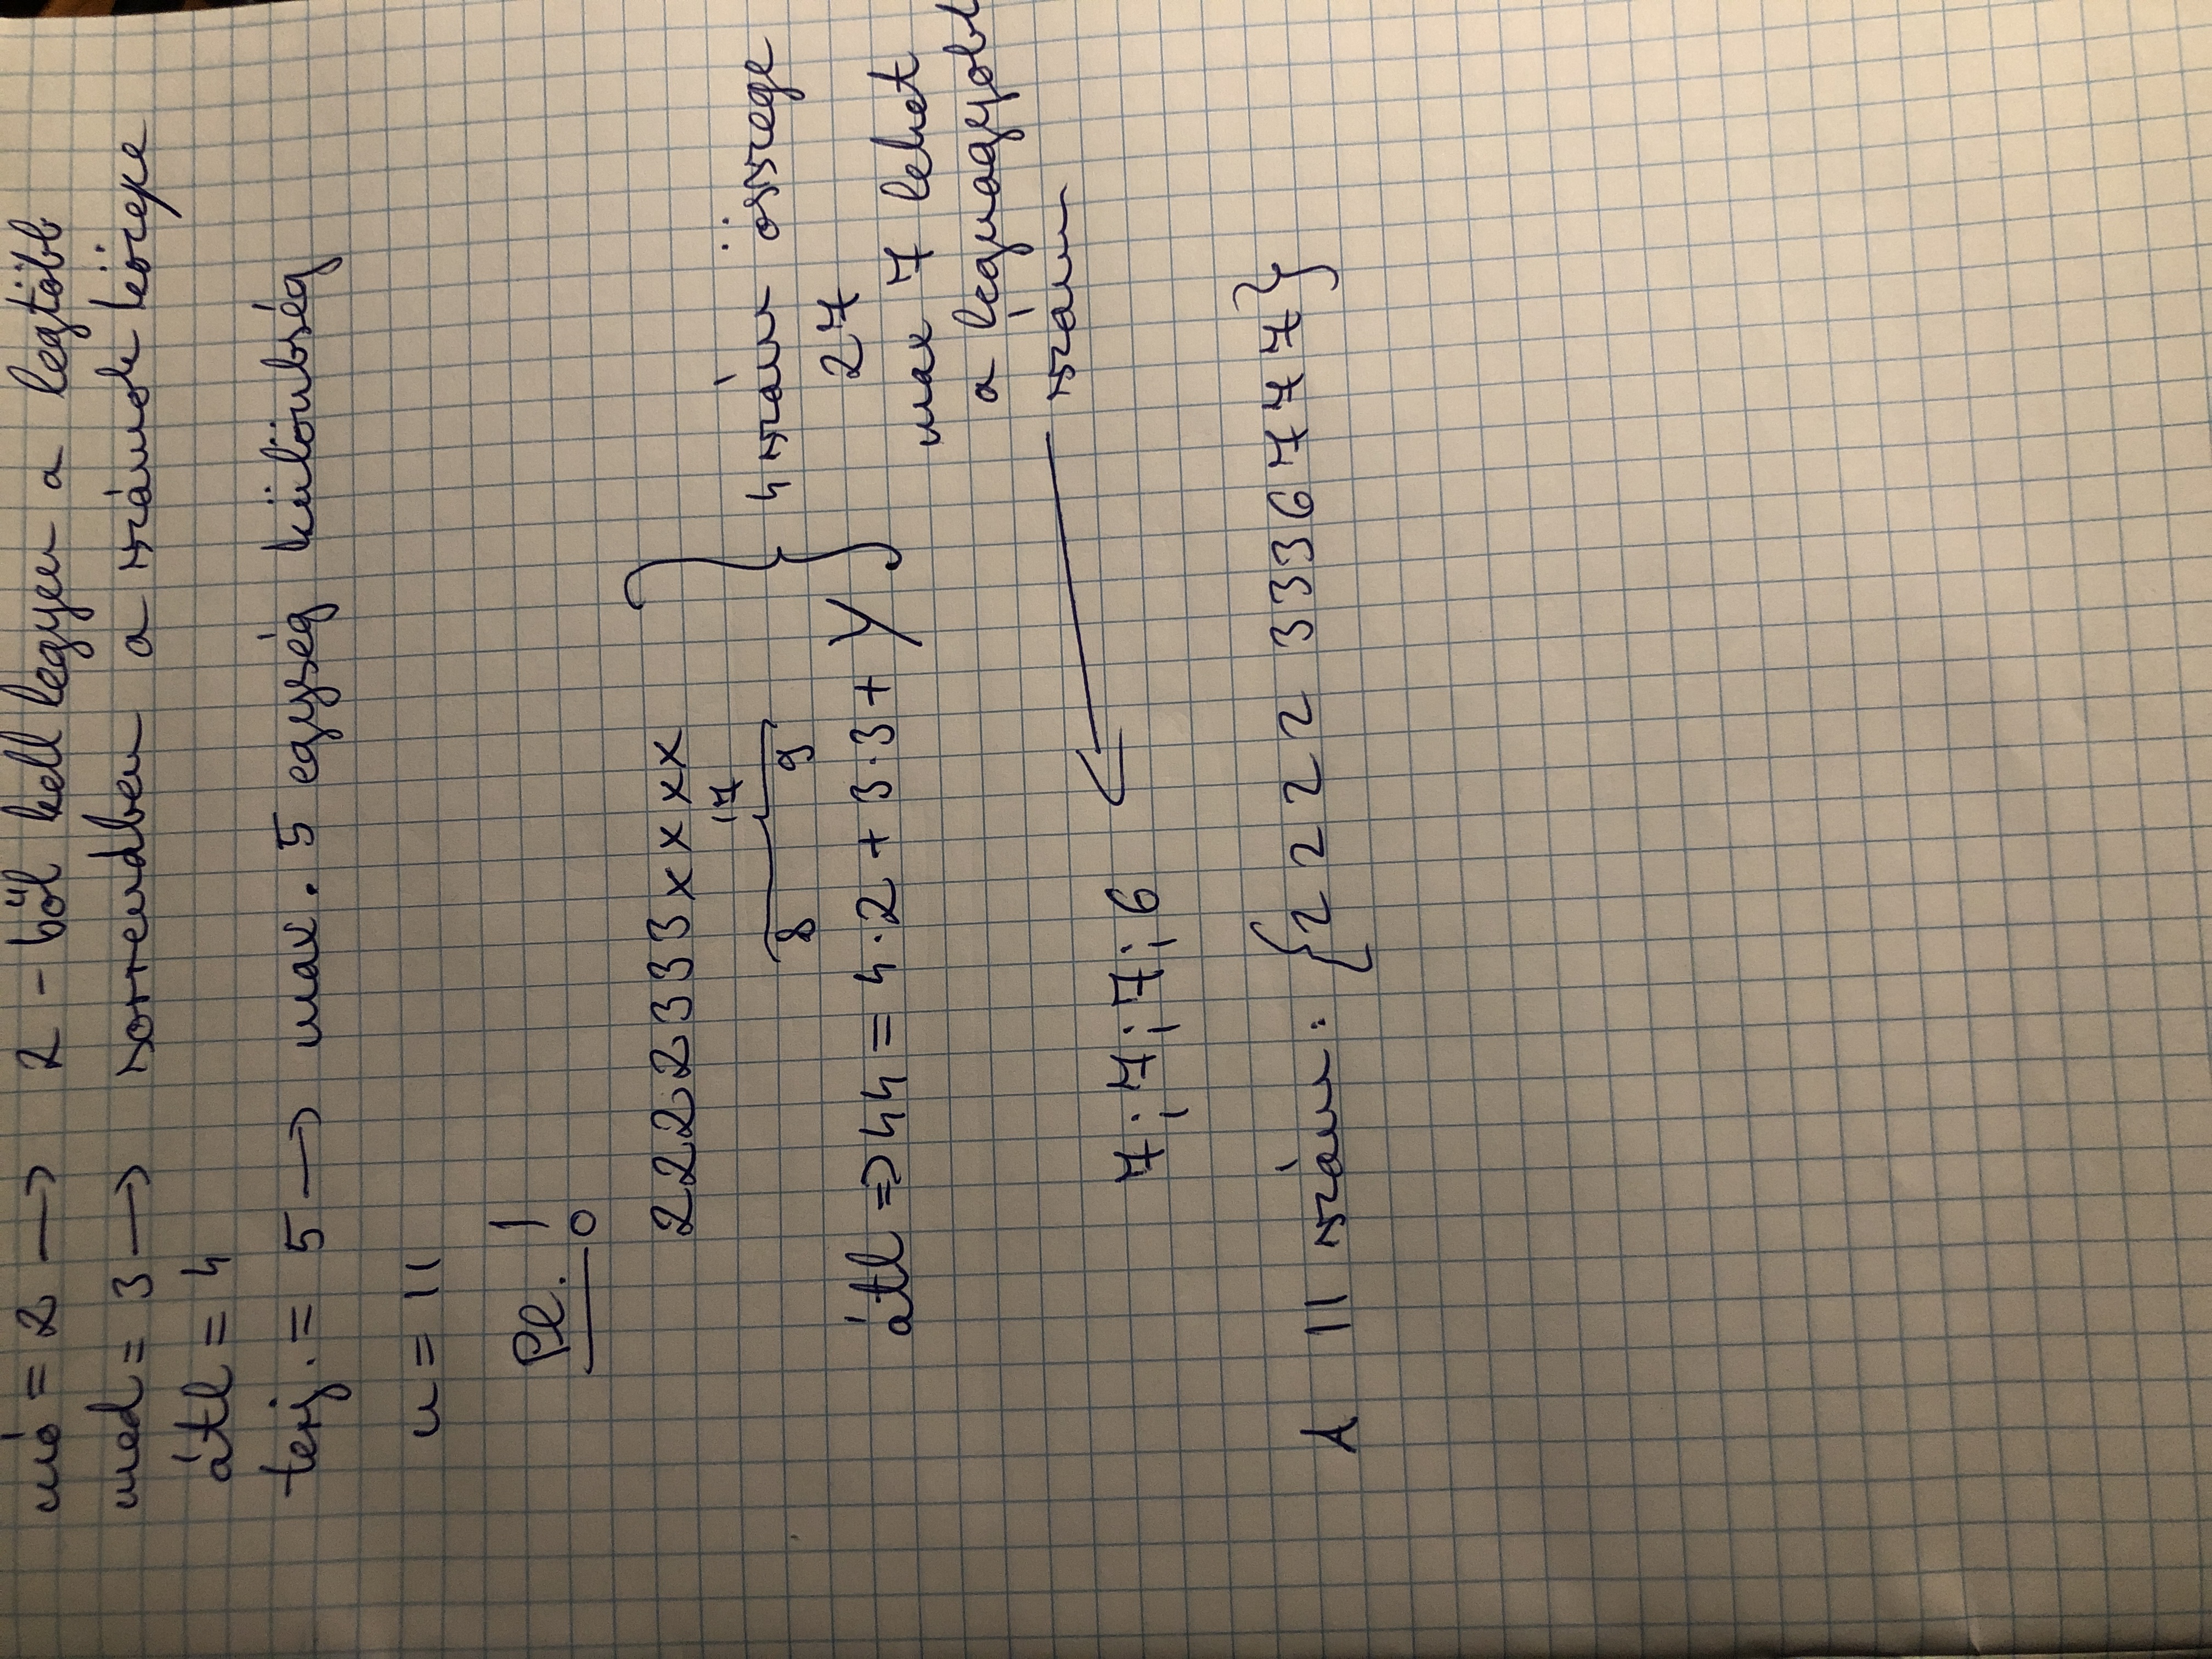 mó = 2 → 2-ből kell legyen a legtöbb
med = 3 → sorrendben a számok közepe
átl = 4
terj. = 5 → max. 5 egység különbség
n = 11
Pl. 1
0
2 2 2 2 3 3 3 x x x x } 4 szám összege
17
27
8 9
átl => 44 = 4·2 + 3·3 + y
max 7 lehet
a legnagyobb
szám
7; 7; 7; 6
A 11 szám: {2 2 2 2 3 3 3 6 7 7 7}